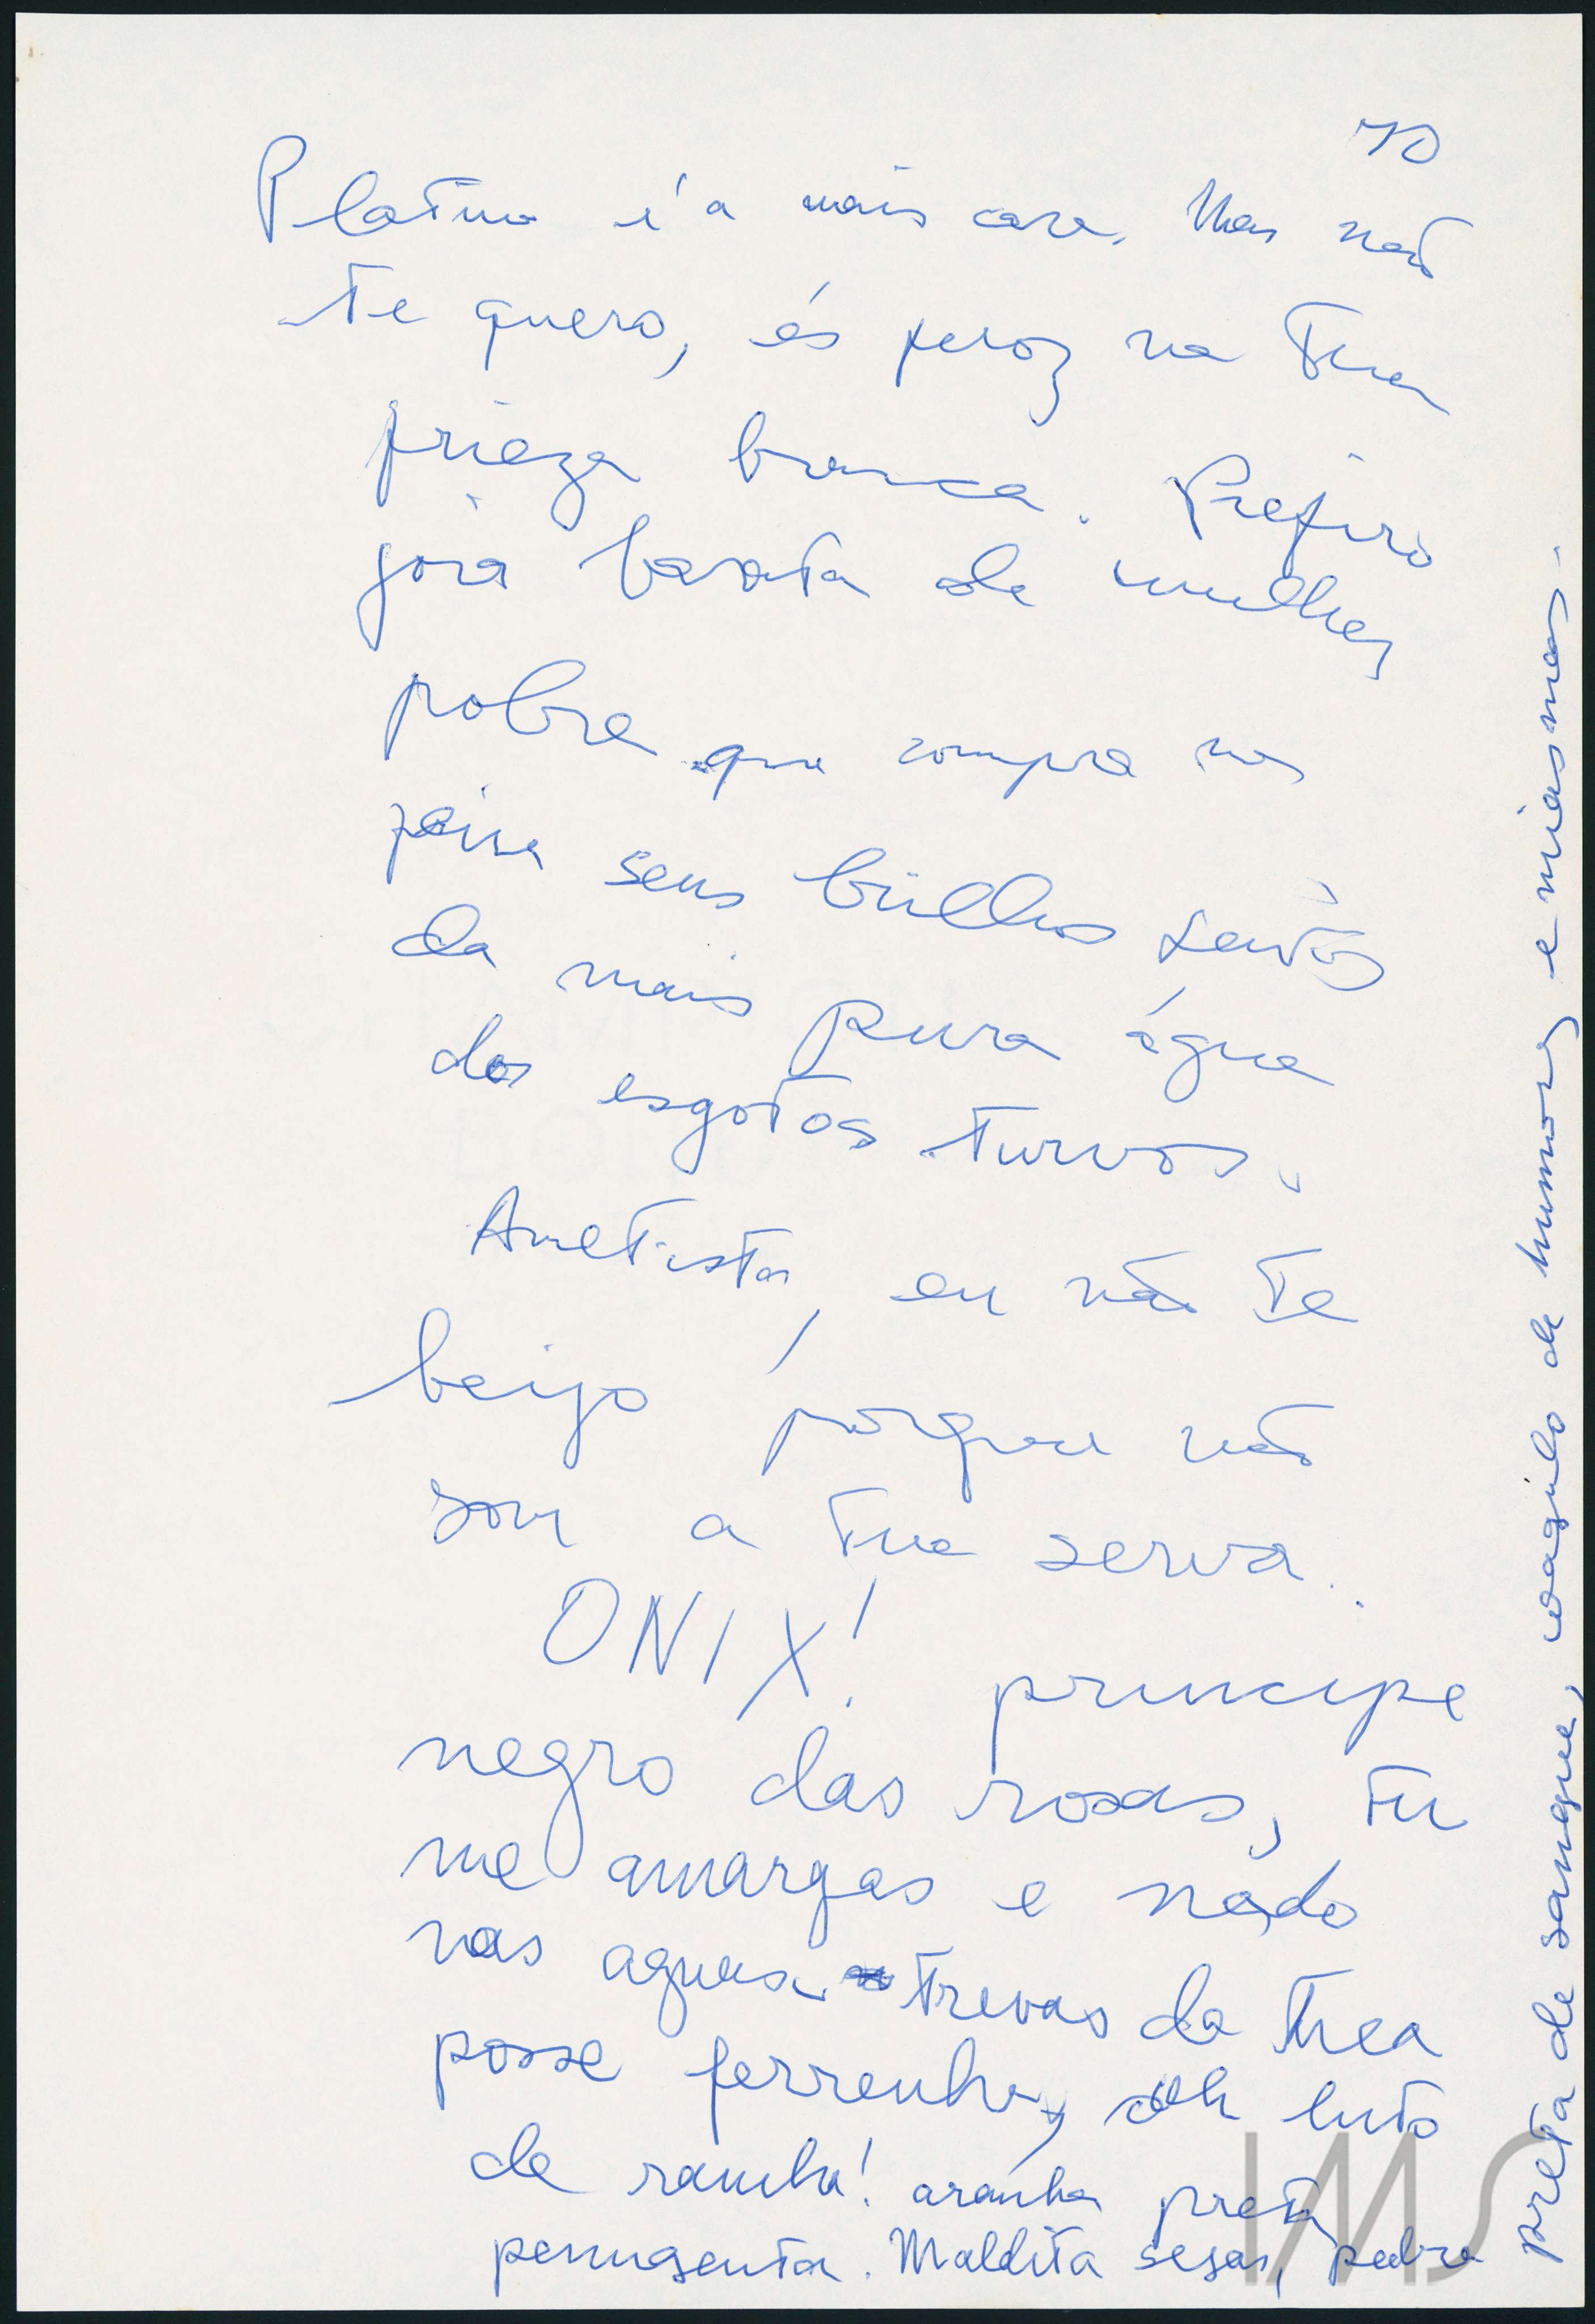 70
Platina é a mais cara. Mas não
te quero, és feroz na tua
frieza branca. Prefiro
joia barata de mulher
pobre que compra na
feira seus brilhos
da mais pura água
dos esgotos turvos.
Ametista, eu não te
beijo porque não
sou a tua serva.
ONIX! principe
negro das rosas, tu
me amargas e nado
nas aguas trevas da tua
posse ferrenha, oh luto
de rainha! aranha preta
penugenta. Maldita sejas, pedra
preta de sangue, coagulo de humores e miasmas.
IMS